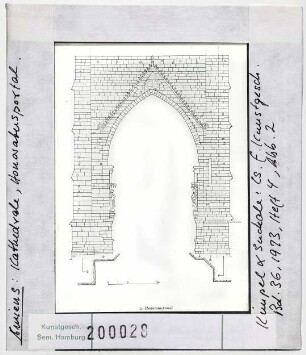 Amiens: Kathedrale, Honoratusportal.
Kimpel & Suckale: Zs. f. Kunstgesch.
Bd. 36, 1973, Heft 4, Abb. 2
Kunstgesch.
Sem. Hamburg
200028